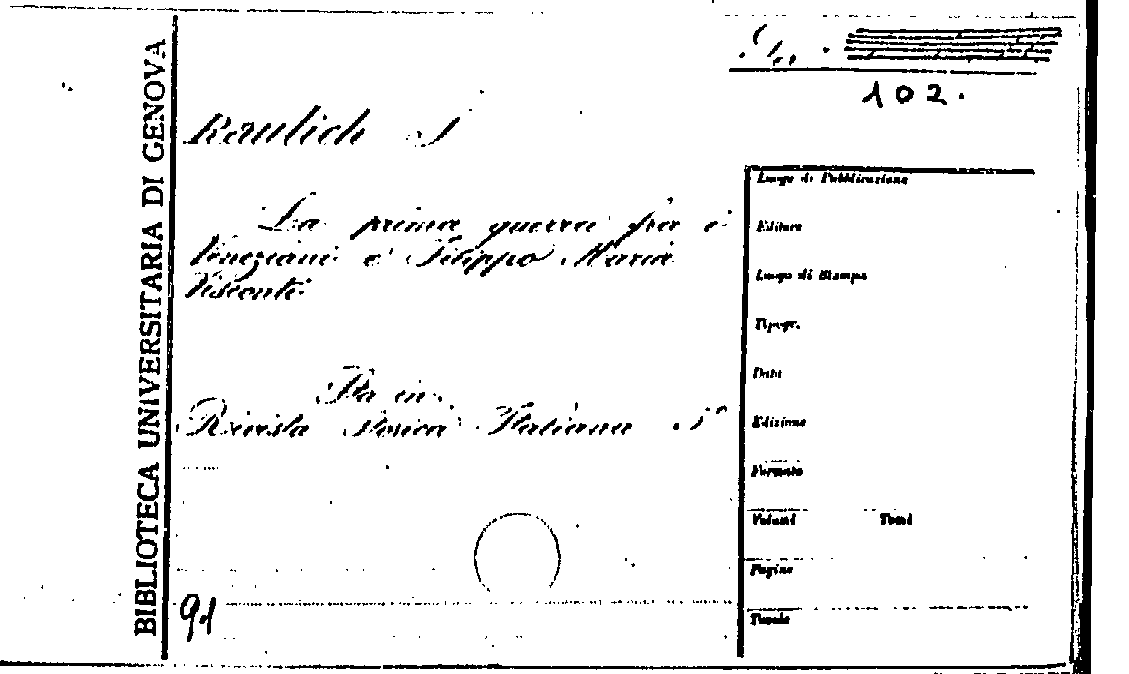 BIBLIOTECA UNIVERSITARIA DI GENOVA
102.
Raulich S
La prima guerra fra i
Veneziani e Filippo Maria
Visconti
Sta in
Rivista Storica Italiana 5°
91
Luogo di Pubblicazione
Editore
Luogo di Stampa
Tipogr.
Data
Edizione
Formato
Volumi Tomi
Pagine
Tavole